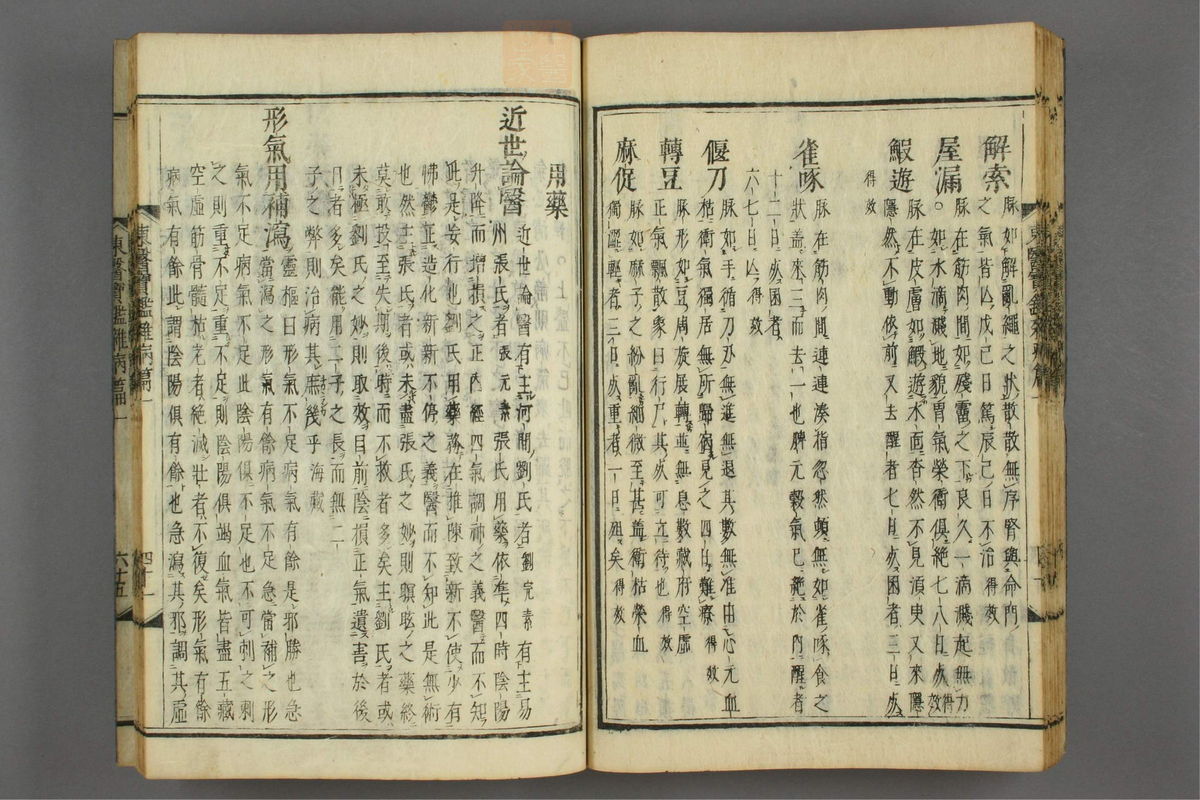 解索
脉如解亂繩之狀散散無序腎與命門
之氣皆亾戊己日篤辰巳日不治得效
屋漏
脉在筋肉間如殘霤之下良久一滴濺起無力
如水滴濺地貌胃氣榮衛俱絶七八日死得效
鰕遊
脉在皮膚如鰕遊水面杳然不見須臾又來隱
隱然不動依前又去醒者七日死困者三日死
得效
雀啄
脉在筋肉間連連湊指忽然頓無如雀啄食之
狀盖來三而去一也脾元穀氣已絶於內醒者
十二日死困者
六七日亾得效
偃刀
脉如手循刀刃無進無退其數無准由心元血
枯衛氣獨居無所歸宿見之四日難療得效
轉豆
脉形如豆周旋展轉並無息數藏府空虛
正氣飄散象曰行尸其死可立待也得效
麻促
脉如麻子之紛亂細微至甚盖衛枯榮血
獨澁輕者三日死重者一日殂矣得效
東醫寶鑑雜病篇一
四十一
用藥
近世論醫
近世論醫有主河間劉氏者劉完素有主易
州張氏者張元素張氏用藥依準四時陰陽
升降而增損之正內經四氣調神之義醫而不知
此是妄行也劉氏用藥務在推陳致新不使少有
怫鬱正造化新新不停之義醫而不知此是無術
也然主張氏者或未盡張氏之妙則瞑眩之藥終
莫敢投至失期後時而不救者多矣主劉氏者或
未極劉氏之妙則取效目前陰損正氣遺害於後
日者多矣能用二子之長而無二
子之弊則治病其庶幾乎海藏
形氣用補瀉
靈樞曰形氣不足病氣有餘是邪勝也急
當瀉之形氣有餘病氣不足急當補之形
氣不足病氣不足此陰陽俱不足也不可刺之刺
之則重不足重不足則陰陽俱竭血氣皆盡五藏
空虛筋骨髓枯老者絶滅壯者不復矣形氣有餘
病氣有餘此謂陰陽俱有餘也急瀉其邪調其虛
東醫寶鑑雜病篇一
四十二
東醫寶鑑雜病篇一
六十五